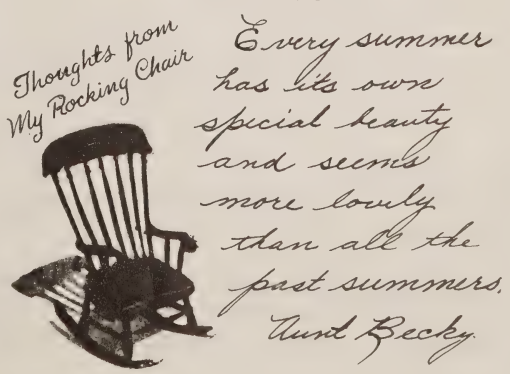 Thoughts from
My Rocking Chair
Every summer
has its own
special beauty
and seems
more lovely
than all the
past summers.
Aunt Becky.